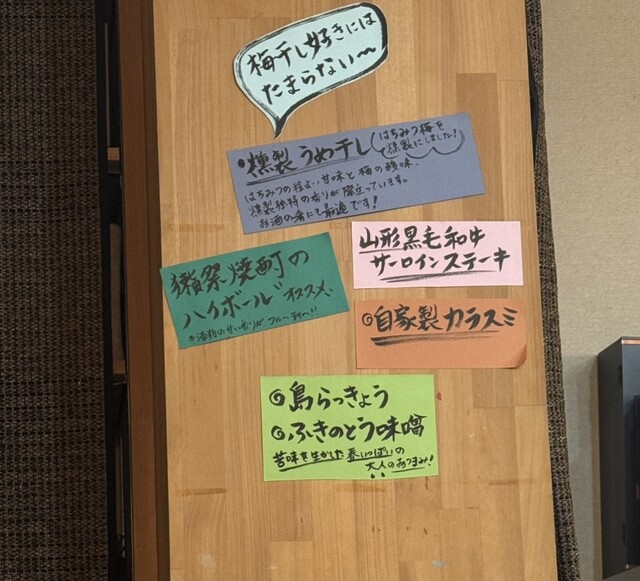 梅干し好きには
たまらない～
・燻製うめ干し
はちみつ梅を
燻製にしました!
はちみつの程よい甘味と梅の酸味、
燻製独特の香りが際立っています。
お酒の肴にも最適です!
山形黒毛和牛
サーロインステーキ
獺祭焼酎の
ハイボール オススメ、
※酒粕の甘い香りが フルーティー!!
◎自家製カラスミ
◎島らっきょう
◎ふきのとう味噌
苦味を生かした春いっぱいの
大人のおつまみ!